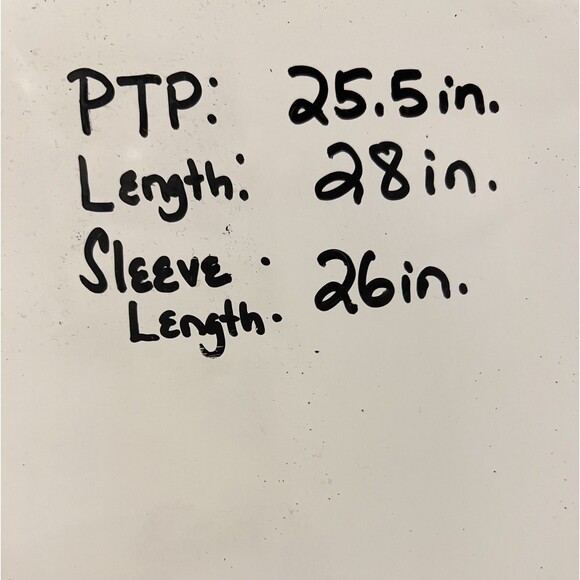 PTP: 25.5in.
Length: 28in.
Sleeve
Length: 26in.